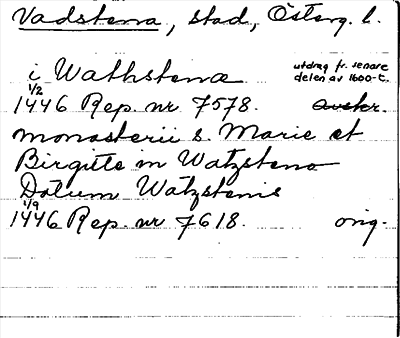 Vadstena, stad, Österg. l.
i Wathstena utdrag fr. senare delen av 1600-t.
1/2 1446 Rep. nr 7578. Avskr.
monasterii s. Marie et
Birgitte in Watzstena
Datum Watzstenis
1/9 1446 Rep. nr 7618. orig.